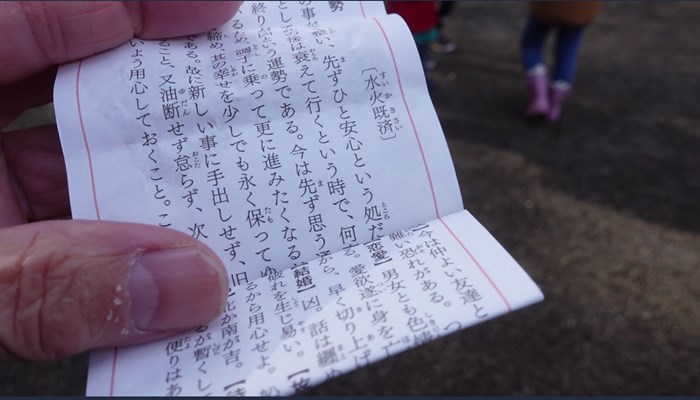 勢
〔水火既済〕
い、先ずひと安心という処だ
の後は衰えて行くという時で、何
終りという運勢である。今は先ず思う
るため、調子に乗って更に進みたくなる
締め、其の幸せを少しでも永く保って
である。故に新しい事に手出しせず、旧
ること、又油断せず怠らず、次
いう用心しておくこと。こ
今は仲よい友達と
難い恐れがある。つ
【恋愛】男女とも色情
る。愛欲遂に身を亡
がら、早く切り上げ
【結婚】凶。話は纏め
破れを生じ易い。【旅
るから用心せよ。船
北か南が吉。【待
るが暫くし
便りはあ